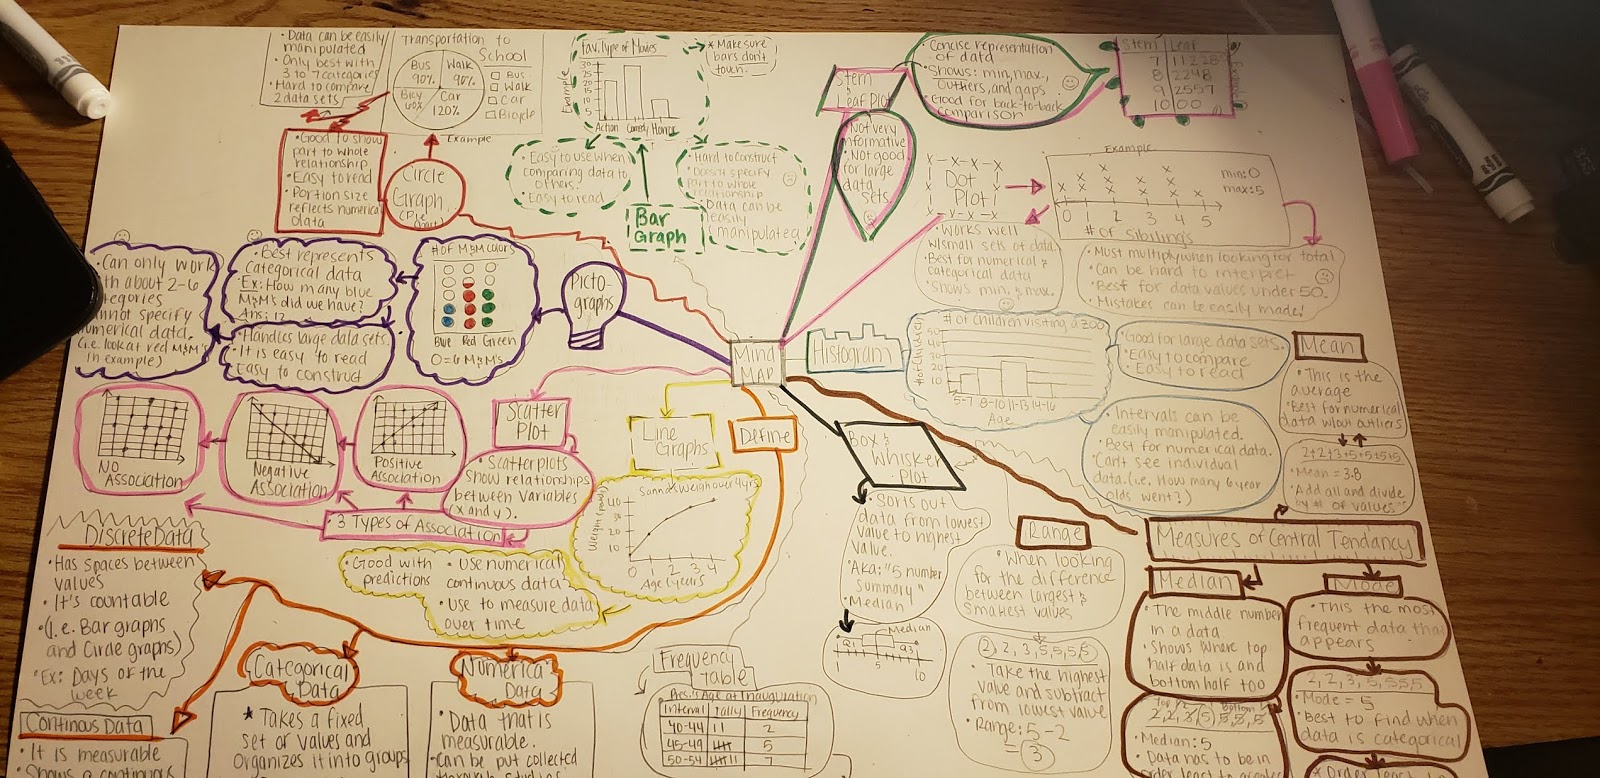 Data can be easily
manipulated
Only best with
3 to 7 categories
Hard to compare
2 data sets
Transportation to
School
Bus
90%
Walk
90%
Bicy
60%
Car
120%
Bus
Walk
Car
Bicycle
Example
Good to show
part to whole
relationship
Easy to read
Portion size
reflects numerical
data
Circle
Graph
(Pie
Chart)
Fav. Type of Movies
30
25
20
15
10
5
Action Comedy Horror
Example
* Make sure
bars don't
touch.
Easy to use when
comparing data to
others.
Easy to read
Bar
Graph
Hard to construct
Doesn't specify
part to whole
relationship
Data can be
easily
manipulated
Stem
Leaf Plot
Concise representation
of data
Shows: min, max,
outliers, and gaps
Good for back-to-back
comparison
Stem Leaf
7 11228
8 2248
9 2557
10 00
Not very
informative
Not good
for large
data
sets.
Dot
Plot
Example
min: 0
max: 5
0 1 2 3 4 5
# of Sibilings
Works well
w/small sets of data
Best for numerical &
categorical data
Shows min, & max.
Must multiply when looking for total
Can be hard to interpret
Best for data values under 50.
Mistakes can be easily made!
Can only work
about 2-6
specify
numerical data.
(i.e. look at red M&M's
in example)
Best represents
Categorical data
Ex: How many blue
M&M's did we have?
Ans: 12
Handles large data sets.
It is easy to read
Easy to construct
# of M&M colors
Blue Red Green
O=6 M&M's
Picto-
graphs
Mind
MAP
Histogram
# of children visiting a zoo
# of Children
50
40
30
20
10
5-7 8-10 11-13 14-16
Age
Good for large data sets.
Easy to compare
Easy to read
Intervals can be
easily manipulated.
Best for numerical data.
Can't see individual
data. (i.e. How many 6 year
olds went?)
Mean
This is the
average
Best for numerical
data w/out outliers
2+2+3+5+5+5+5
Mean = 3.8
Add all and divide
by # of values
NO
Association
Negative
Association
Positive
Association
Scatter
Plot
Scatterplots
show relationships
between variables
(x and y).
3 Types of Association
Line
Graphs
Define
weigh over 4 yrs
Weight (pounds)
40
30
20
10
0 1 2 3 4
Age (years
Good with
predictions
Use numerical
continuous data
Use to measure data
over time
Box &
Whisker
Plot
Sorts out
data from lowest
value to highest
value.
Aka: "5 number
summary"
Median
Median
Q1
Q3
1 5 10
Range
When looking
for the difference
between largest &
smallest values
2, 2, 3, 5, 5, 5, 5
Take the highest
value and subtract
from lowest value
Range: 5-2
= 3
Measures of Central Tendancy
Median
The middle number
in a data
Shows where top
half data is and
bottom half too
Top 1/2 Bottom
2, 2, 3, 5, 5, 5, 5
Median: 5
Data has to be in
order least to greatest
Mode
This the most
frequent data that
appears
2, 2, 3, 5, 5, 5, 5
Mode = 5
Best to find when
data is categorical
* Order least
Discrete Data
Has spaces between
values
It's countable
(i.e. Bar graphs
and Circle graphs)
Ex: Days of the
week
Continous Data
It is measurable
Shows a continuous
Categorical
Data
* Takes a fixed
set or values and
Organizes it into groups
Numerical
Data
Data that is
measurable.
Can be put collected
through studies
Frequency
Table
Pres.'s Age at Inauguration
Interval Tally Frequency
40-44 2
45-49 5
50-54 7